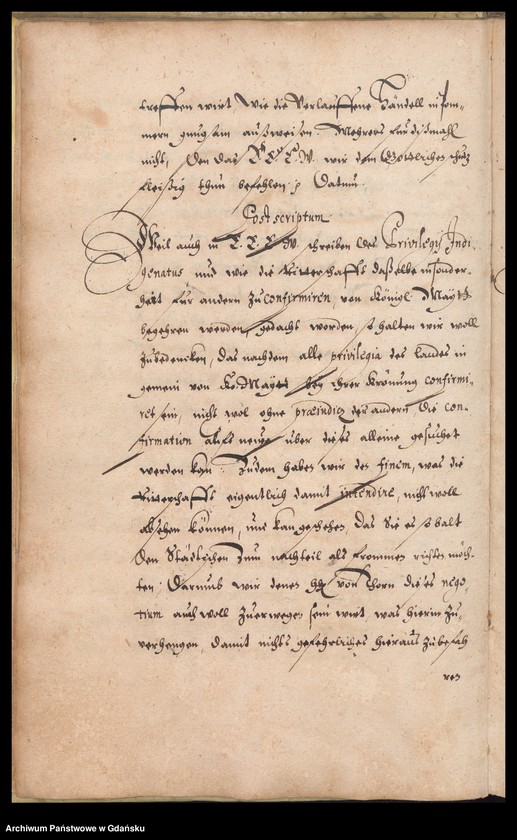 treffen wirt, wie die Verlauffene Händell in som-
mern gnugsam außweisen. Mehrers für dißmahl
nicht, Den das E. E. E. W. wir dem Gottlichen schutz
fleißig thun befehlen. Datum.
Postscriptum
Weil auch in E. E. E. W. schreiben des Privilegij Indi-
genatus und wie die Ritterschafft daßelbe insonder-
heit für andern zu confirmiren von Königl. Maytt
begehren werden, gedacht worden, so halten wir woll
zubedencken, das nachdem alle privilegia des landes in
gemein von Ko. Maytt bey ihrer Krönung confirmi-
ret sein, nicht wol ohne præiudicz der andern die con-
firmation auffs neuwe über dieses alleine gesuchet
werden kan. Zudem haben wir den finem, was die
Ritterschafft eigentlich damit intendire, nicht woll
absehen können, und kan geschehen, das Sie es so balt
den Städtschen zum nachteil als frommen richten möch-
ten. Darumb wir denen HH. von Thorn dieses nego-
tium auch woll zuerwegen sein wirt, was hierin zu-
verhengen, damit nichts gefehrliches hieraus zubefah
ren
Archiwum Państwowe w Gdańsku